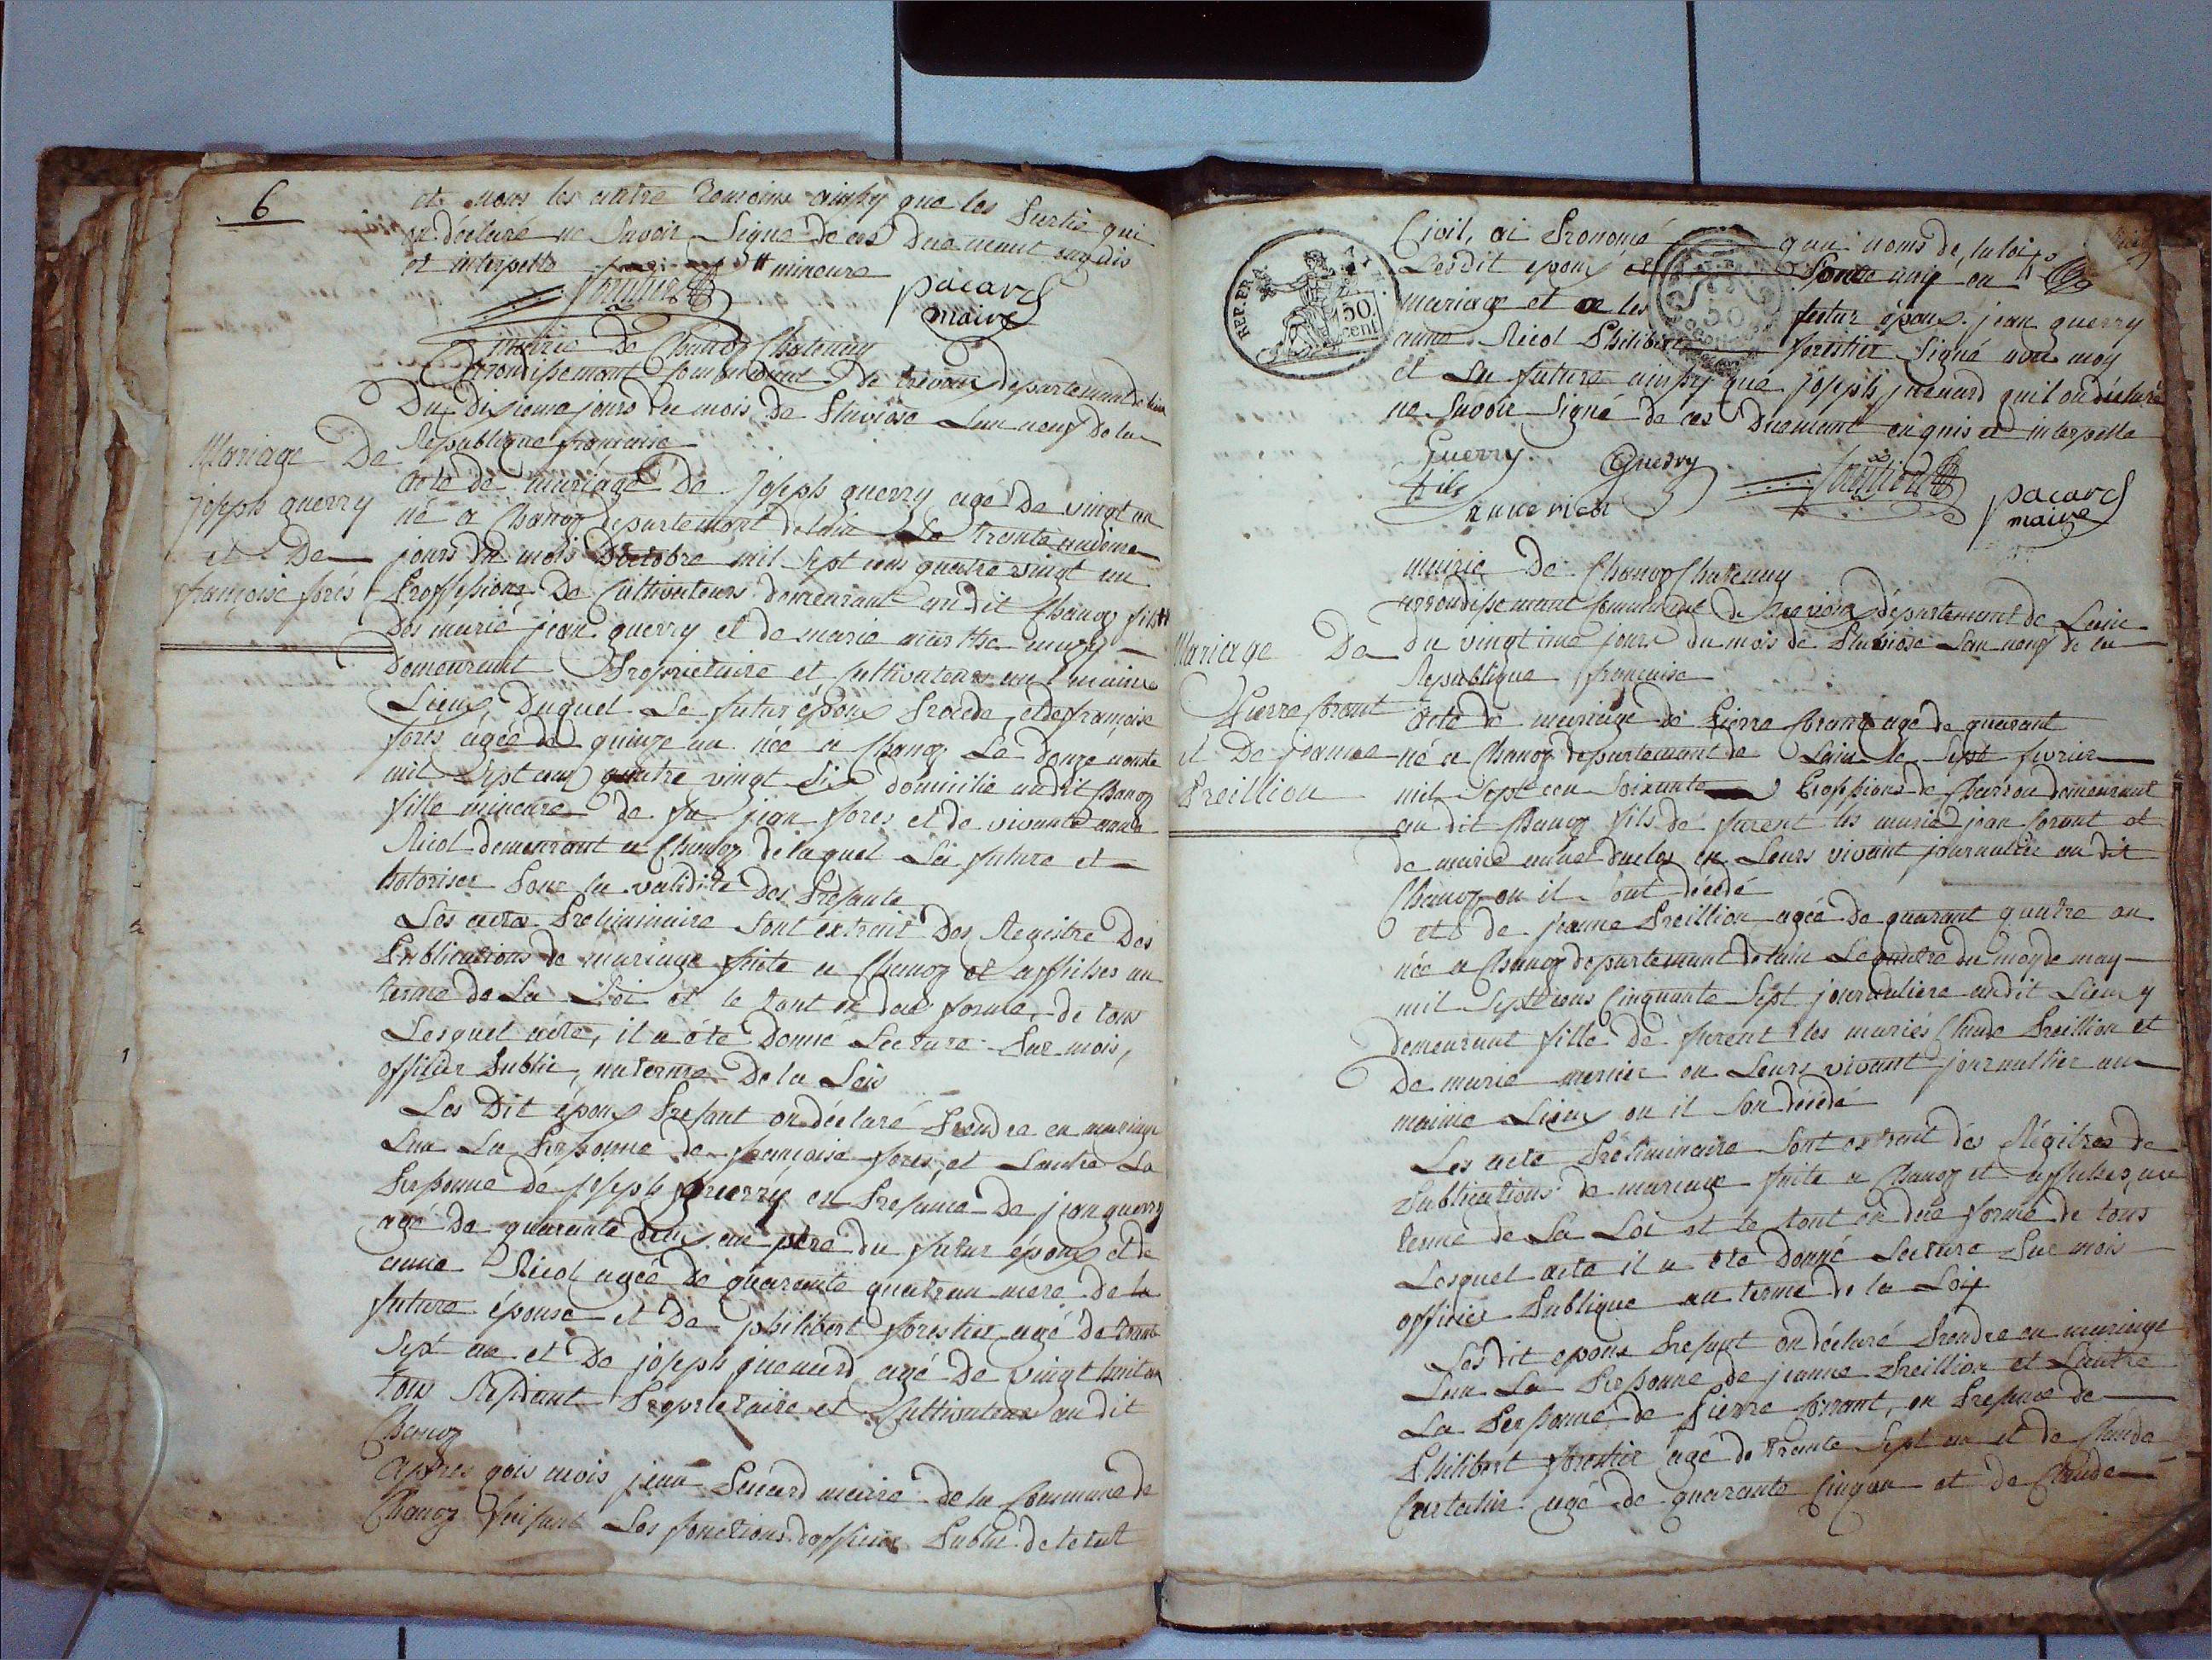 6
et nous les autre temoins ainsy que les partie qui
on déclaré ne savoir signe de ces duement enquis
et interpelle
# mineure
pacard
maire
mairie de Chanoz Chatenay
arrondisemant communal de trevoux departement de lain
Du dixieme jours du mois de Pluviose Lan neuf de la
Republique française
Mariage De
joseph guerry
et De
françoise forés
acte de mariage de joseph guerry agé de vingt an
né a Chanoz departemant de lain le trente unieme
jours du mois doctobre mil sept cens quatre vingt un
Proffesions De Cultivateurs demeurant audit Chanoz fils #
des marié jean guerry et de marie marthe
demeurant Proprietaire et Cultivateurs au maime
Lieux Duquel Le futur époux Procede et de françoise
forés agée de quinze an née a Chanoz Le douze
mil sept cens quatre vingt six domicilié audit Chanoz
fille mineure de fu jean fores et de vivante anne
Nicol demeurant a Chanoz de laquel La future et
hotoriser Pour la validité des Présante
Les acte Preliminaire sont extrait Des Registre Des
Publications de mariage faite a Chanoz et affiches au
terme de La Loi et le tout en due forme, de tous
Lesquel acte, il a éte Donné Lecture Par mois,
officier Public, au terme De la Loix
Les Dit époux Presant on déclaré Prendre en mariage
Lun La Personne de françoise forés et Lautre La
Personne de joseph guerry en Presance De jean guerry
agé De quarante deux an père du futur époux et de
anne Nicol agée de quarante quatre an mere de la
future épouse et De philibert forestier agé De trante
Sept an et De joseph juenerd agé De vingt huit an
tous Residant Propriétaire et Cultivateur audit
Chanoz
apres qois mois jean Pacard maire de la Commune de
Chanoz faisant Les fonctions dofficier Public de letat
REP. FRA.
50
cent
50
Civil, ai Prononcé quau noms de la loi
Lesdit epoux
mariage et a les futur époux jean guerry
anne Nicol Philibert forestier Signé avec moy
et La future ainsy que joseph juenard quil on déclaré
ne Savoir Signé de ces Duemant enquis et interpelle
Guerry
fils
Guerry
anne nicol
pacard
maire
mairie De Chanoz Chatenay
arrondisemant Communal de trevoux département de Lain
Mariage De
Pierre Corant
et De jeanne
Preillion
du vingtieme jours du mois de Pluviose Lan neuf de la
Republique française
acte de mariage de Pierre Corant agé de quarant
né a Chanoz departemant de Lain le sept fevrier
mil Sept cen Soixante Proffesions de Charron demeurant
au dit Chanoz fils de furent les marié jean Corant et
de marie en Leurs vivant journalier au dit
Chanoz ou il sont décédé
et de jeanne Preillion agée de quarant quatre an
née a Chanoz departemant de lain Le quatre du moy de may
mil Sept cens Cinquante Sept journaliere audit Lieux y
demeurant fille de furent les mariés Claude Preillion et
De marie mercier en Leurs vivant journallier au
maime Lieux ou il son décédé
Les acte Préliminaire Sont extrait des Régitres de
Publications de mariage faite a Chanoz et affiches, au
terme de La Loi et le tout en due forme de tous
Lesquel acte il a ete Donné Lecture Par mois
officier Publique au terme de la Loix
Lesdit epoux Presant on déclaré Prendre en mariage
Lun La Personne de jeanne Preillion et Lautre
La Personne de Pierre Corant, en Presance de
Philibert forestier agé de trante Sept an et de Claude
agé de quarante Cinq an et de Claude